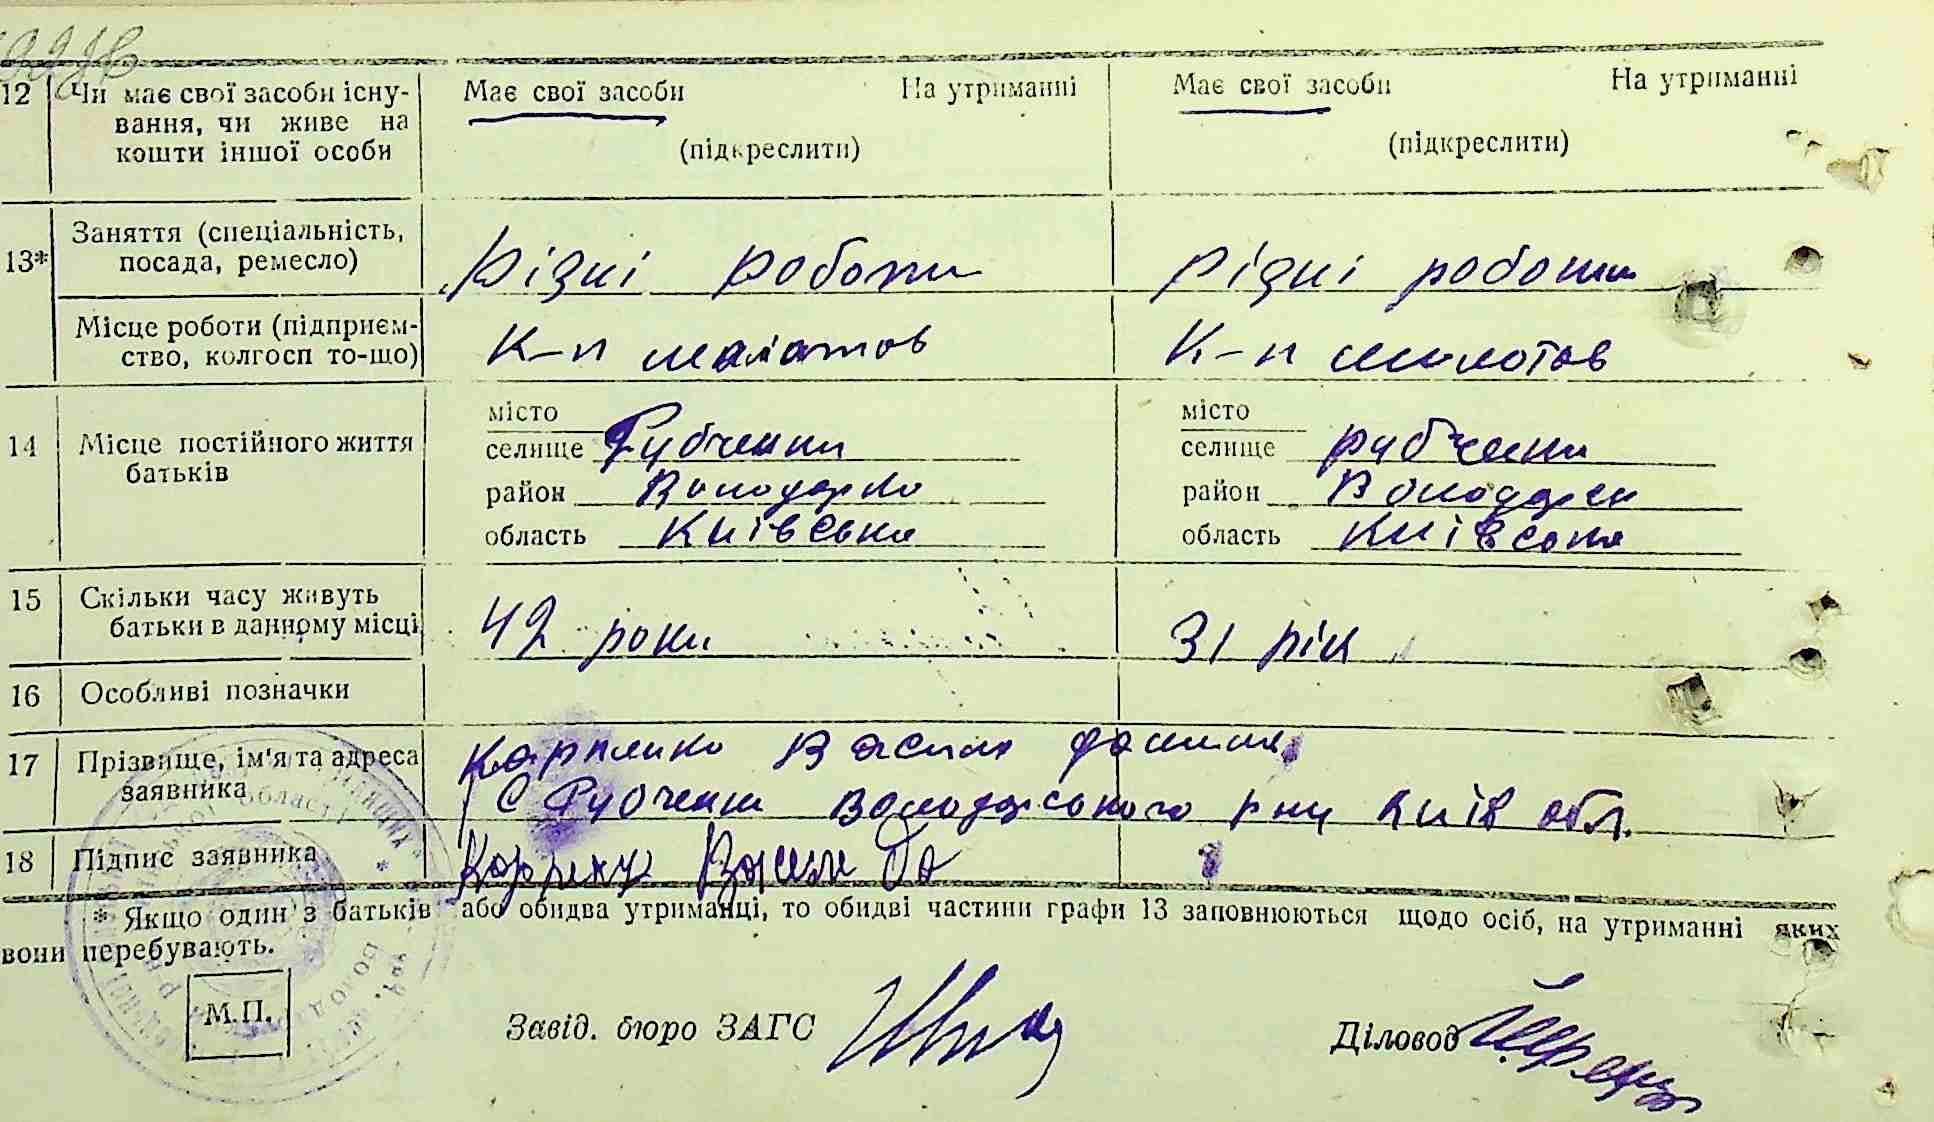 12 Чи має свої засоби існу-
вання, чи живе на
кошти іншої особи
Має свої засоби На утриманні
(підкреслити)
Має свої засоби На утриманні
(підкреслити)
13* Заняття (спеціальність,
посада, ремесло)
Різні роботи
різні роботи
Місце роботи (підприєм-
ство, колгосп то-що)
К-п молотов
К-п молотов
14 Місце постійного життя
батьків
місто
селище Рубченки
район Володарка
область Київська
місто
селище рубченки
район Володарск
область Київська
15 Скільки часу живуть
батьки в данному місці
42 роки
31 рік
16 Особливі позначки
17 Прізвище, ім'я та адреса
заявника
Карпенко Василь
с Рубченки Володарського р ну Київ обл.
18 Підпис заявника
* Якщо один з батьків або обидва утриманці, то обидві частини графи 13 заповнюються щодо осіб, на утриманні яких
вони перебувають.
М.П.
Завід. бюро ЗАГС
Діловод